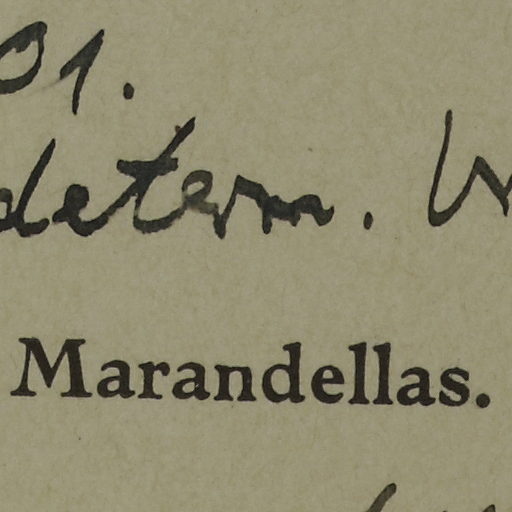 01.
determ.
Marandellas.